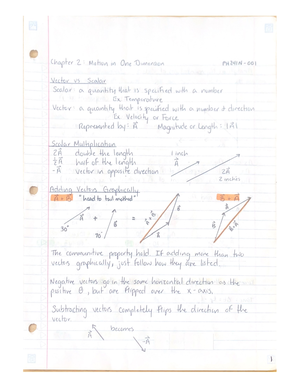 Chapter 2: Motion in One Dimension
Vector vs Scalar
Scalar: a quantity that is specified with a number
Ex. Temperature
Vector: a quantity that is specified with a number & direction
Ex. Velocity or Force
Represented by: A Magnitude or Length: |A|
Scalar Multiplication
2A double the length
½A half of the length
-A vector in opposite direction
1 inch
A
2A
2 inches
Adding Vectors Graphically
A + B "head to tail method"
B + A
A
30°
+
B
70°
=
A
B
A+B
B
A
B+A
The communitive property held. If adding more than two
vectors graphically, just follow how they are listed.
Negative vectors go in the same horizontal direction as the
positive θ, but are flipped over the x-axis.
Subtracting vectors completely flips the direction of the
vector.
A
becomes
-A
1